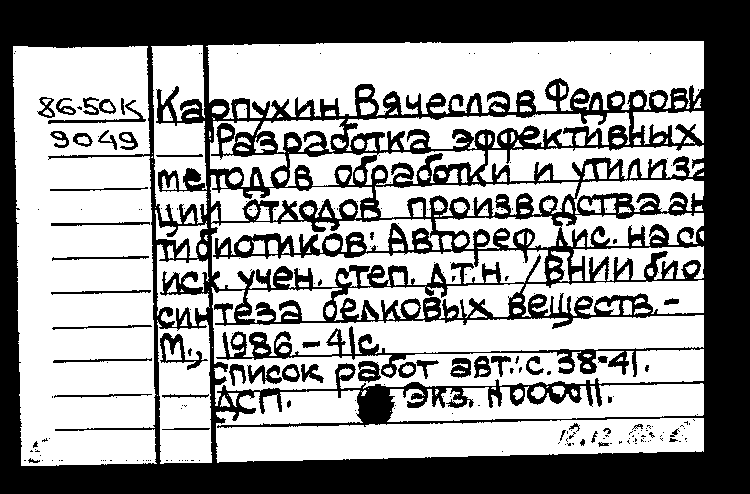 86-50К
9049
Карпухин, Вячеслав Федорови
Разработка эффективных
методов обработки и утилиза
ции отходов производства ан
тибиотиков: Автореф. дис. на со
иск. учен. степ. д.т.н. /ВНИИ био
синтеза белковых веществ. -
М., 1986. - 41с.
Список работ авт.: с. 38-41.
ДСП. Экз. N000011.